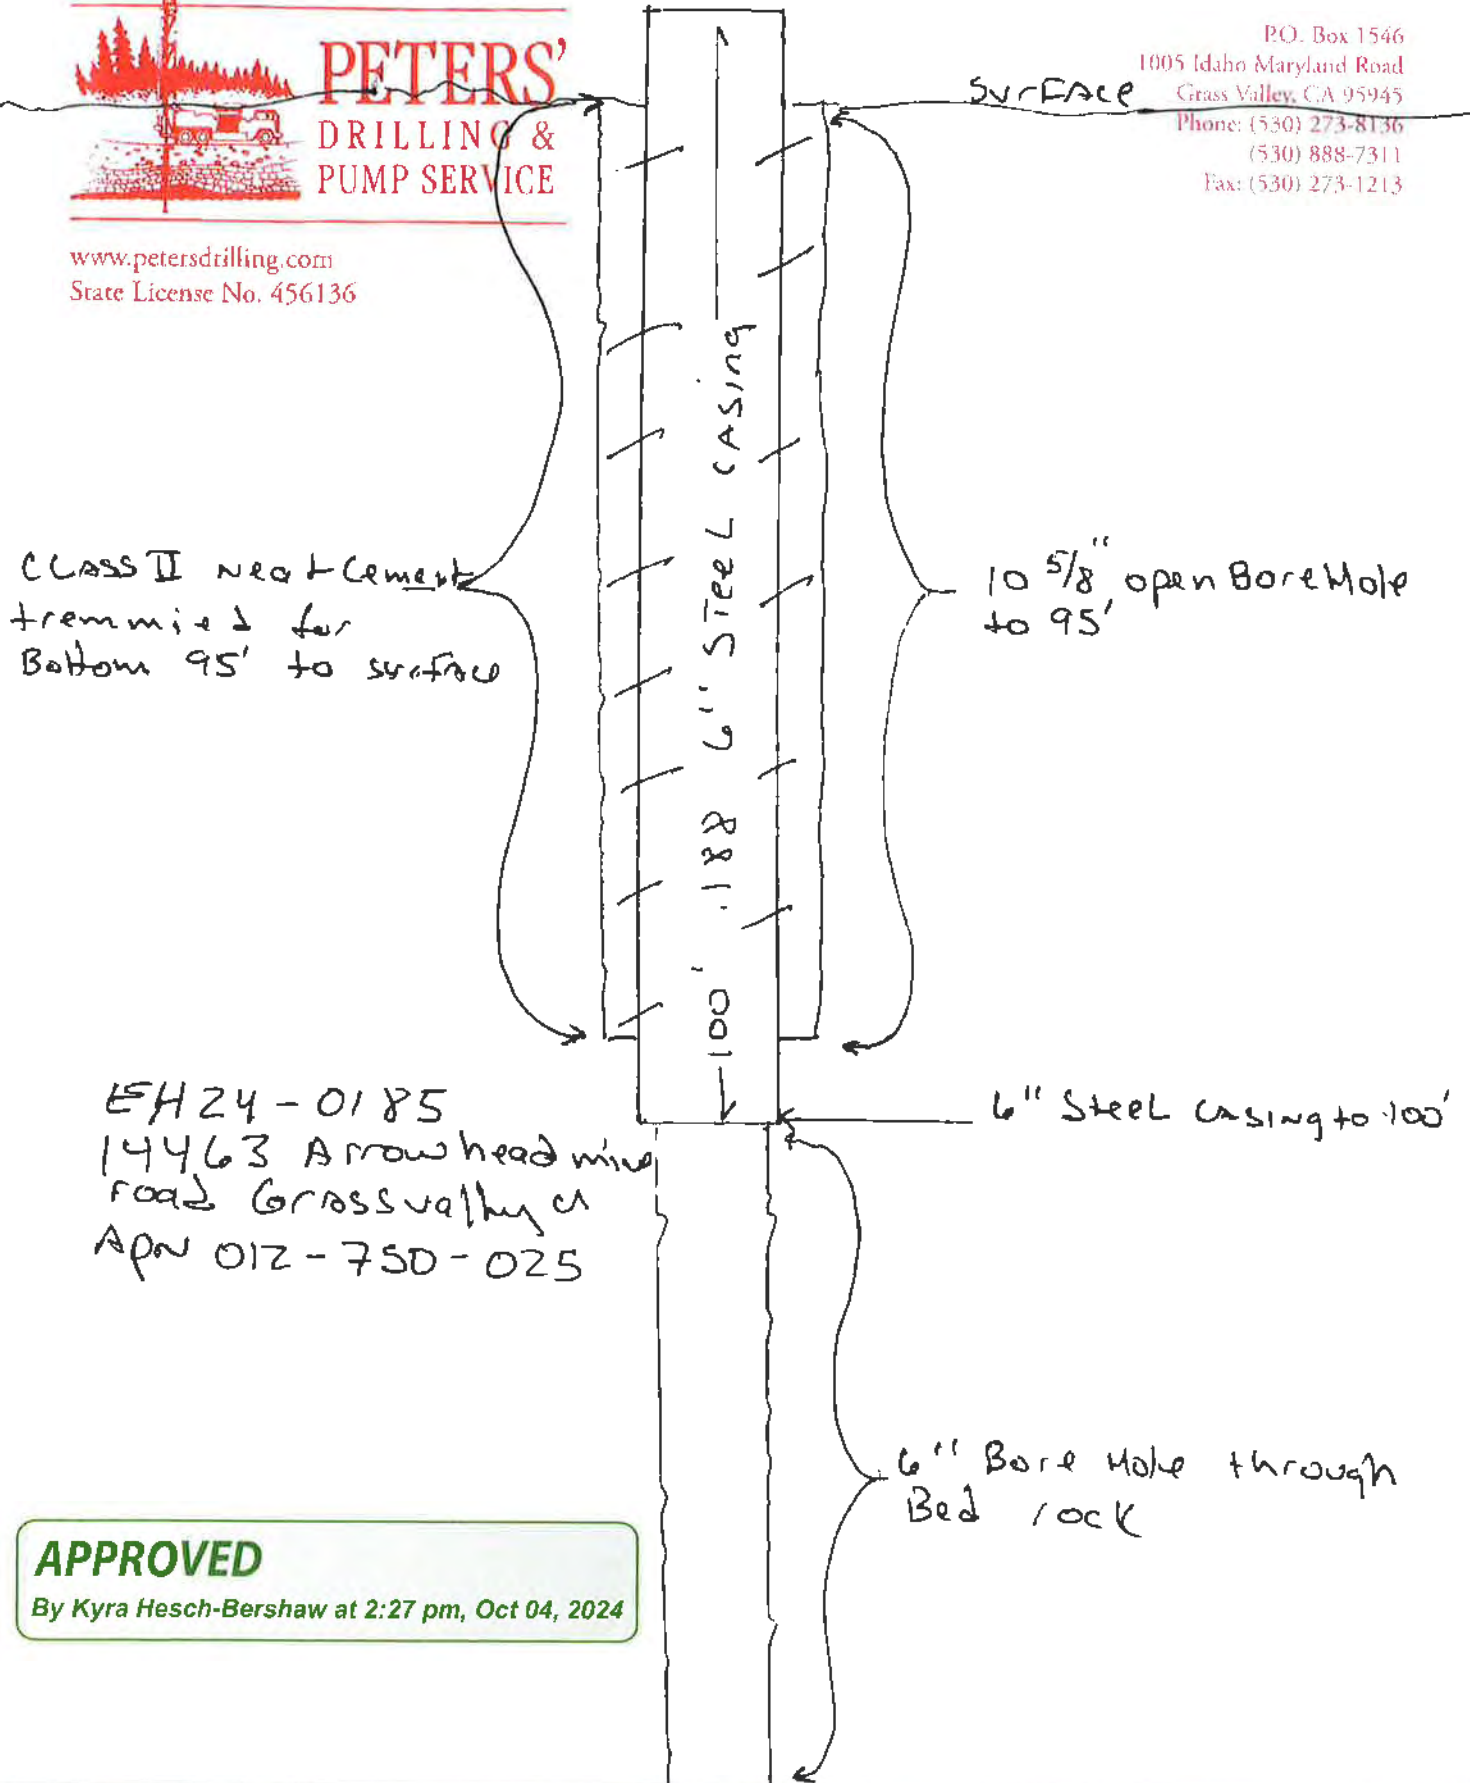 PETERS'
DRILLING &
PUMP SERVICE
www.petersdrilling.com
State License No. 456136
P.O. Box 1546
1005 Idaho Maryland Road
Grass Valley, CA 95945
Phone: (530) 273-8136
(530) 888-7311
Fax: (530) 273-1213
SurFace
100' .188 6" Steel CASing
CLASS II Neat Cement
tremmied for
Bottom 95' to surface
10 5/8" open Bore Hole
to 95'
6" Steel CASING to 100'
EH24-0185
14463 Arrowhead mine
road Grass valley CA
APN 012-750-025
6" Bore Hole through
Bed rock
APPROVED
By Kyra Hesch-Bershaw at 2:27 pm, Oct 04, 2024